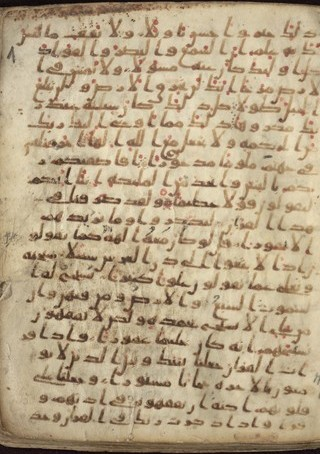 ذلك خير و احسن تاويلا ولا تقف ما ليس
لك به علم ان السمع والبصر والفواد
كل اولئك كان عنه مسولا ولا تمش في ا
لارض مرحا انك لن تخرق الارض ولن تبلغ
الجبال طولا كل ذلك كان سيئه عند ر
بك مكروها ذلك مما اوحى اليك ربك
من الحكمه ولا تجعل مع الله الها اخر فتلقى
في جهنم ملوما مدحورا افاصفيكم ر
بكم بالبنين واتخذ من الملئكه انثا انكم
لتقولون قولا عظيما ولقد صرفنا في
هذا القران ليذكروا وما يزيدهم
الا نفورا قل لو كان معه الهه كما يقولو
ن اذا لابتغوا الى ذي العرش سبيلا سبحنه
وتعلى عما يقولون علوا كبيرا تسبح له ا
لسموت السبع والارض ومن فيهن وان
من شي الا يسبح بحمده ولكن لا تفقهون
تسبيحهم انه كان حليما غفورا واذا قر
ات القران جعلنا بينك وبين الذين لا يو
منون بالاخره حجابا مستورا وجعلنا على
قلوبهم اكنه ان يفقهوه وفي اذنهم و
قرا واذا ذكرت ربك في القران وحد